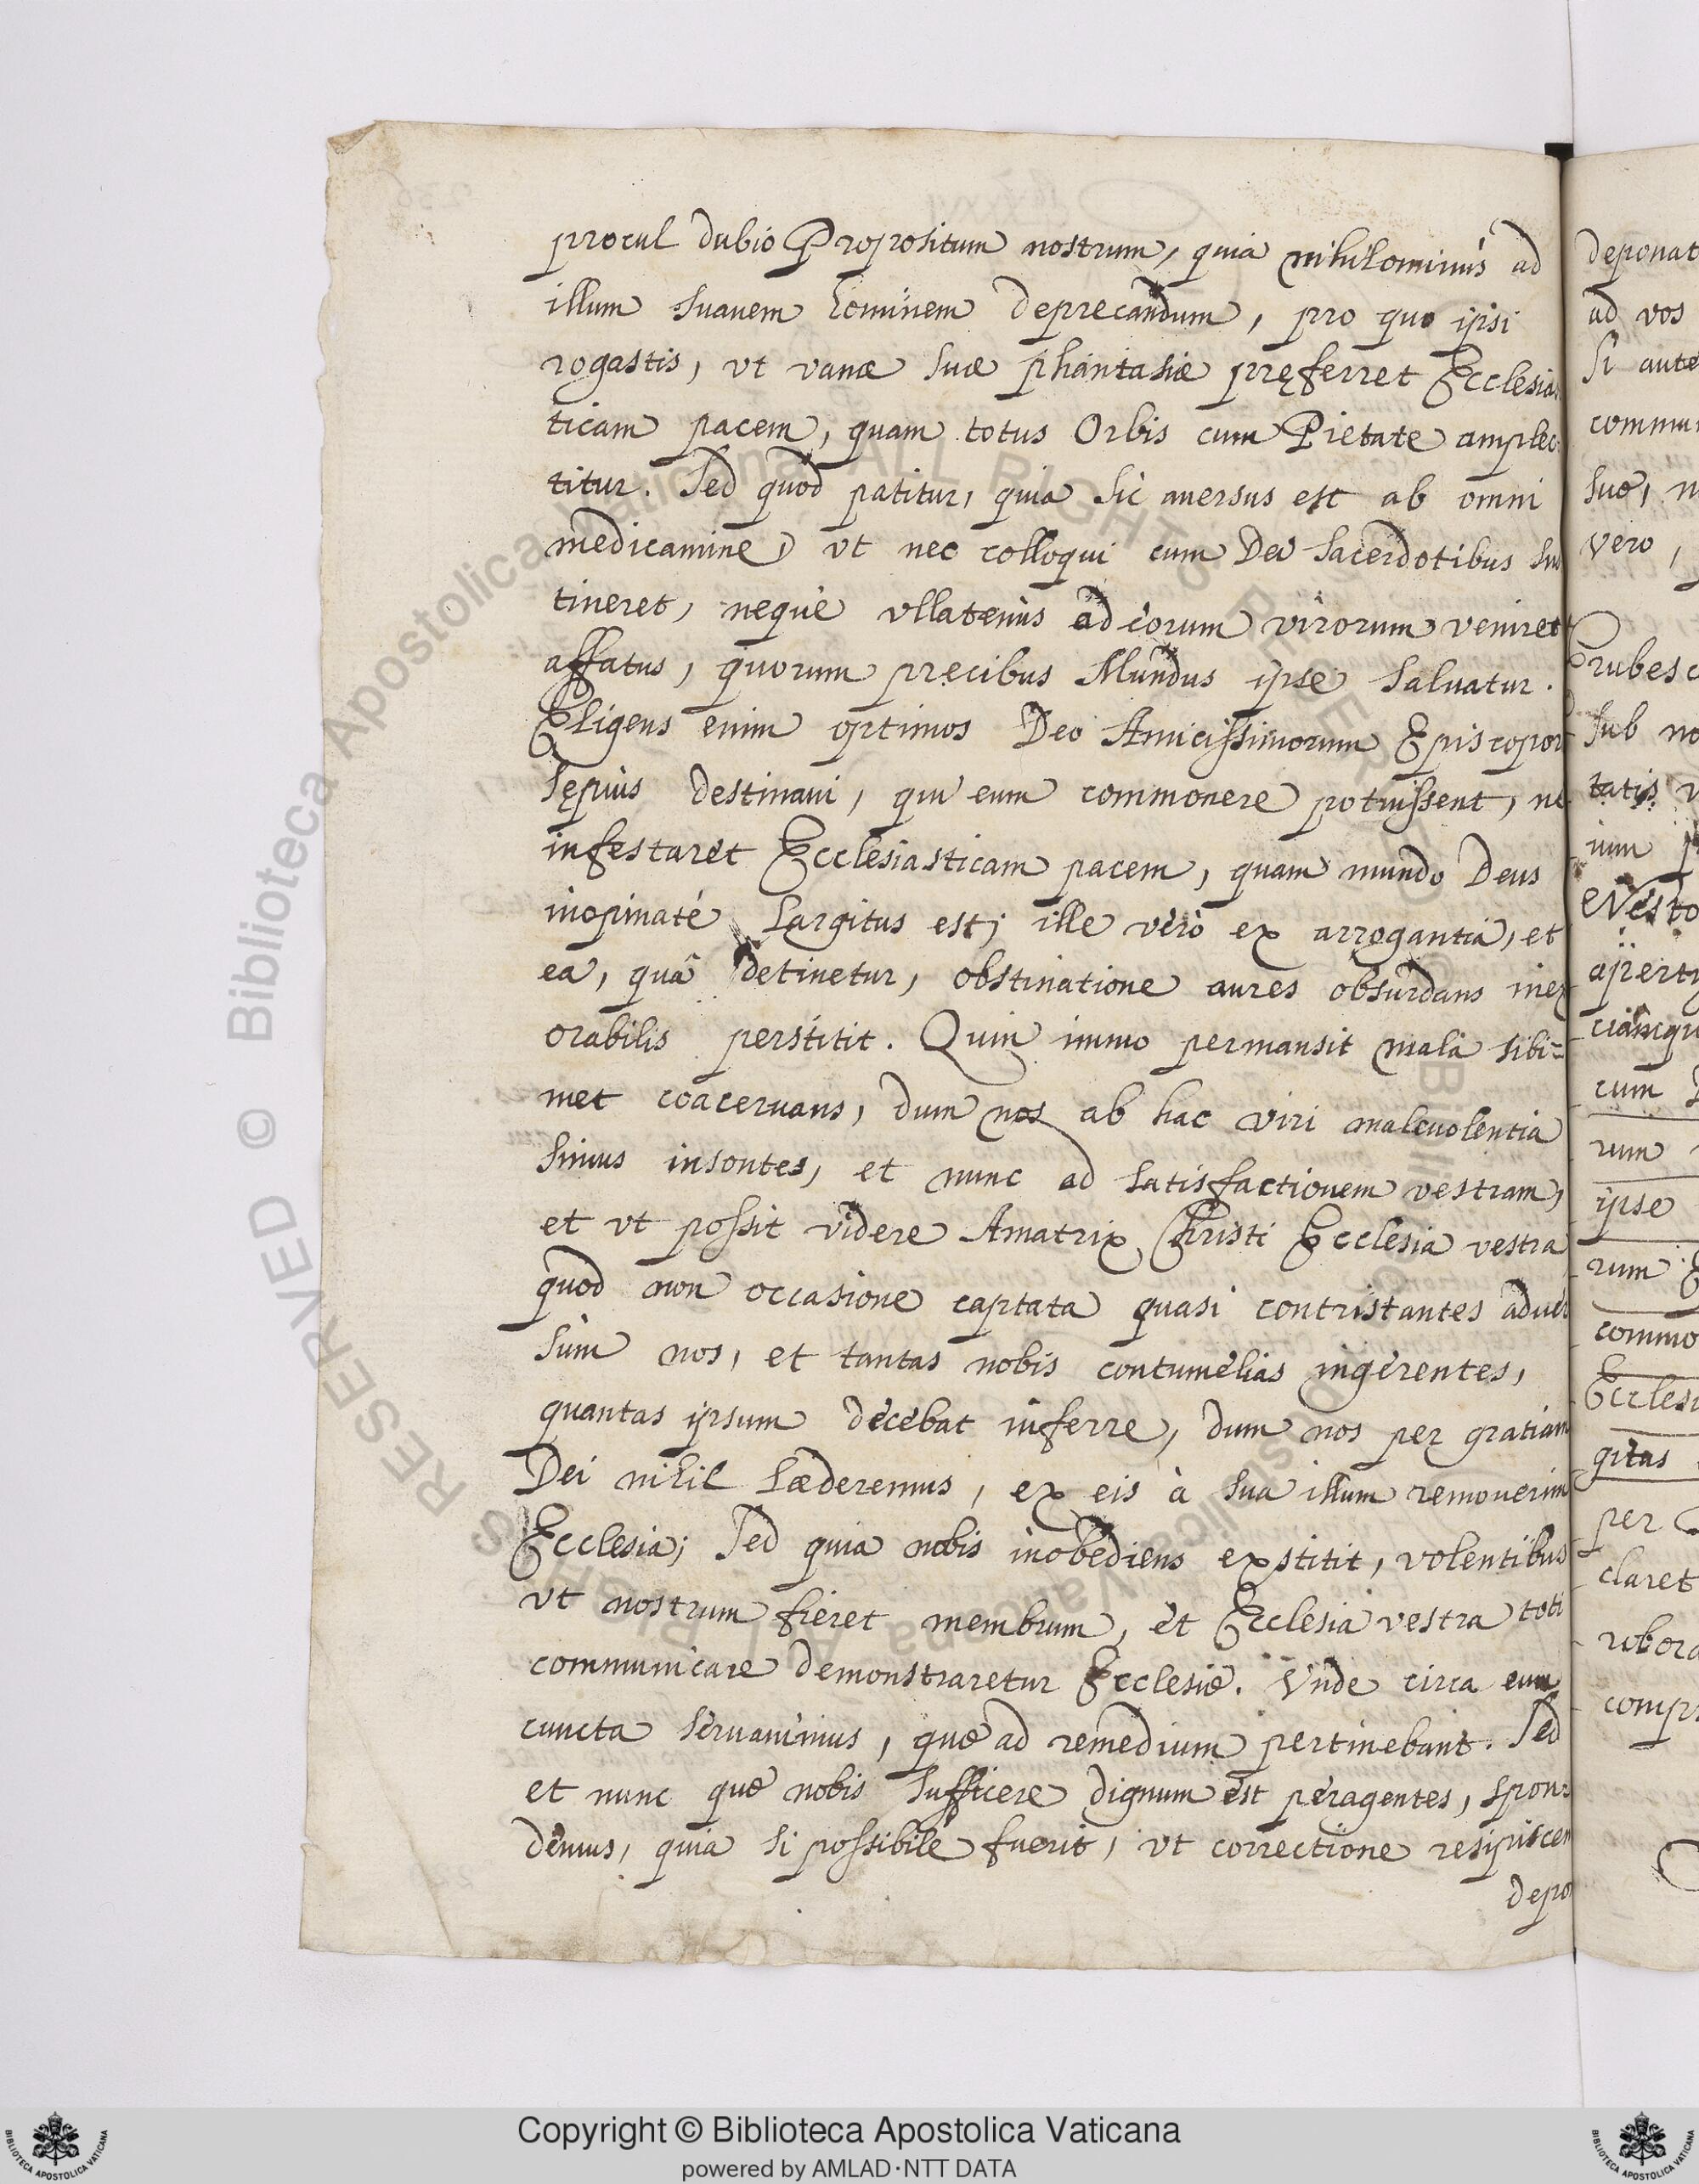 procul dubio Propositum nostrum, quia nihilominùs ad
illum suauem hominem deprecandum, pro quo ipsi
rogastis, vt vanæ suæ phantasiæ pręferret Ecclesias
ticam pacem, quam totus Orbis cum Pietate amplec
titur. Sed quod patitur, quia sic auersus est ab omni
medicamine, vt nec colloqui cum Dei Sacerdotibus sus
tineret, neque vllatenùs ad eorum virorum veniret
affatus, quorum precibus Mundus ipse saluatur.
Eligens enim optimos Deo Amicissimorum Episcopor
sępiùs destinaui, qui eum commonere potuissent, ne
infestaret Ecclesiasticam pacem, quam mundo Deus
inopinaté Largitus est; ille verò ex arrogantia, et
ea, quâ detinetur, obstinatione aures obsurdans inex
orabilis perstitit. Quin immo permansit mala sibi=
met coaceruans, dum nos ab hac viri maleuolentia
simus insontes, et nunc ad satisfactionem vestram,
et vt possit videre Amatrix Christi Ecclesia vestra
quod non occasione captata quasi contristantes aduer
sùm nos, et tantas nobis contumelias ingerentes,
quantas ipsum decebat inferre, dum nos per gratiam
Dei nihil Læderemus, ex eis à sua illum remouerim
Ecclesia; Sed quia nobis inobediens exstitit, volentibus
vt nostrum fieret membrum, et Ecclesia vestra toti
communicare demonstraretur Ecclesiæ. Vnde circa eum
cuncta seruauimus, quæ ad remedium pertinebant. Sed
et nunc quæ nobis sufficere dignum est peragentes, spon=
demus, quia si possibile fuerit, vt correctione resipiscen
depo
deponat
ad vos
Si aute
commun
suo, n
vero,
Erubesc
sub no
tatis v
ium p
Nesto
apert
ciamqu
cum
rum
ipse
rum E
commo
Ecclesi
gitas
per
claret
robora
compr
© Biblioteca Apostolica Vaticana ALL RIGHTS RESERVED
© Biblioteca Apostolica Vaticana ALL RIGHTS RESERVED
Copyright © Biblioteca Apostolica Vaticana
powered by AMLAD·NTT DATA
BIBLIOTECA APOSTOLICA VATICANA
BIBLIOTECA APOSTOLICA VATICANA